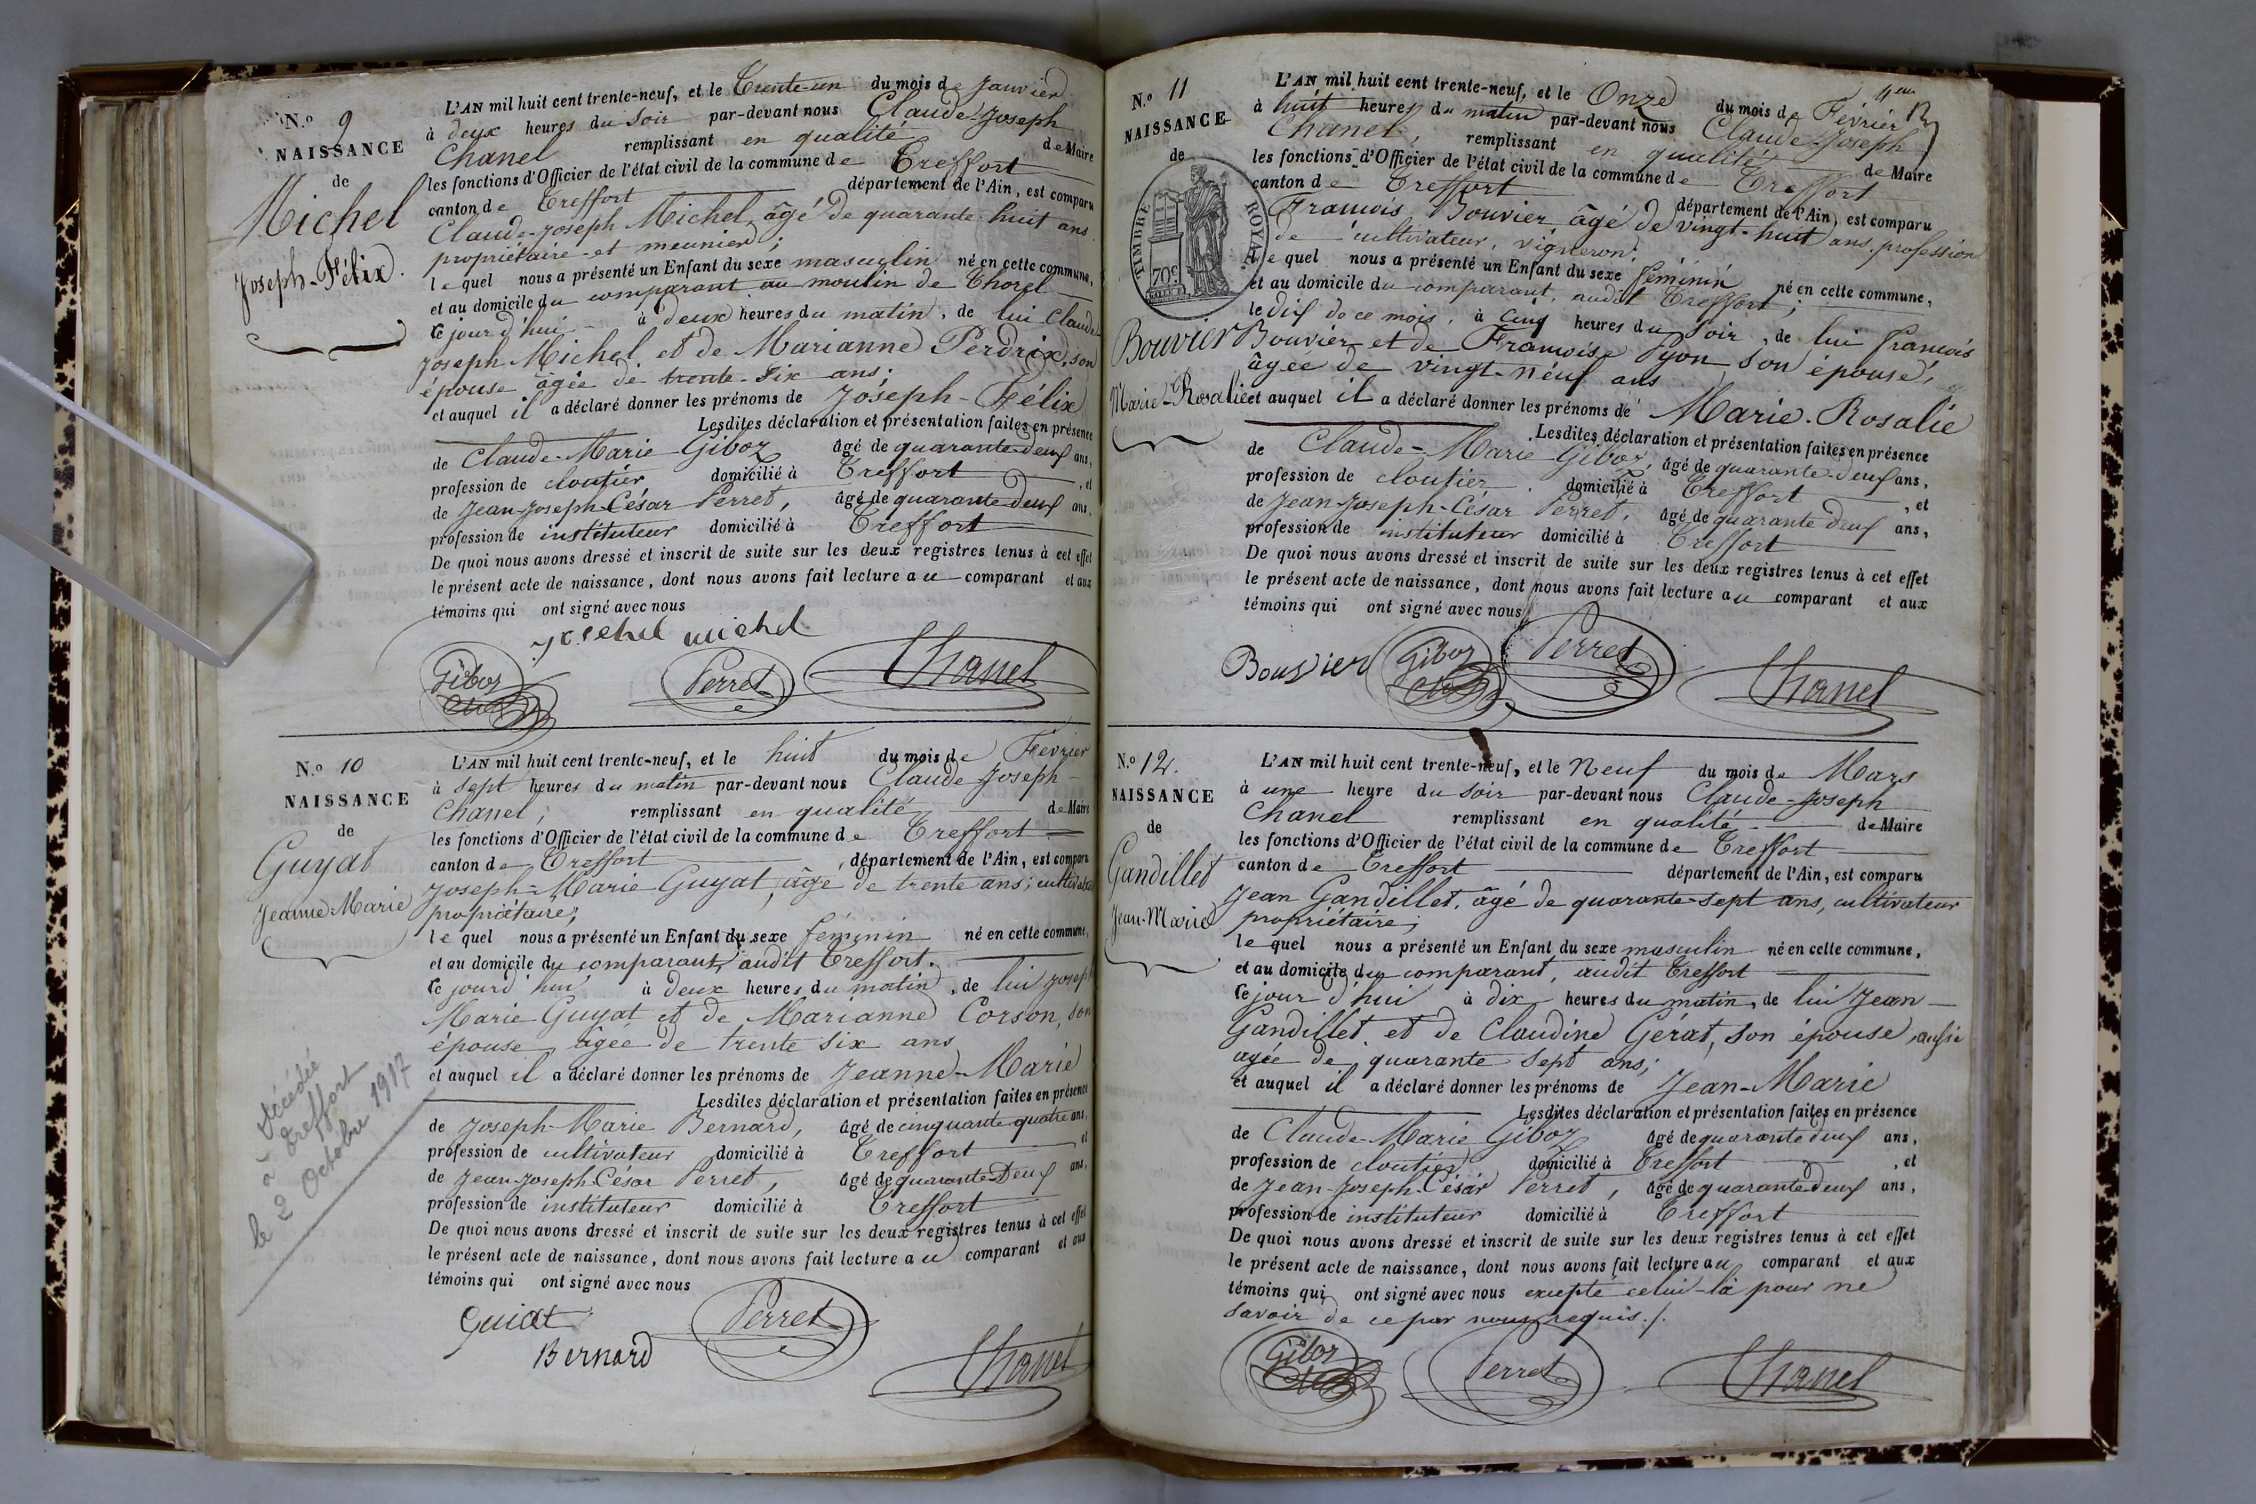 N.º 9
NAISSANCE
de
Michel
Joseph-Félix.
L'AN mil huit cent trente-neuf, et le Trente-un du mois de Janvier
à deux heures du Soir par-devant nous Claude-Joseph
Chanel remplissant en qualité de Maire
les fonctions d'Officier de l'état civil de la commune de Treffort
canton de Treffort département de l'Ain, est comparu
Claude-Joseph Michel, âgé de quarante-huit ans
propriétaire et meunier;
lequel nous a présenté un Enfant du sexe masculin né en cette commune,
et au domicile du comparant au moulin de Thorel
ce jour d'hui à deux heures du matin, de lui Claude-
Joseph Michel et de Marianne Perdrix, son
épouse âgée de trente-six ans;
et auquel il a déclaré donner les prénoms de Joseph-Félix
Lesdites déclaration et présentation faites en présence
de Claude-Marie Giboz âgé de quarante-deux ans,
profession de cloutier domicilié à Treffort, et
de Jean-Joseph-César Perret, âgé de quarante deux ans,
profession de instituteur domicilié à Treffort
De quoi nous avons dressé et inscrit de suite sur les deux registres tenus à cet effet
le présent acte de naissance, dont nous avons fait lecture au comparant et aux
témoins qui ont signé avec nous
michel
Giboz
Perret
Chanel
N.º 10
NAISSANCE
de
Guyat
Jeanne-Marie
L'AN mil huit cent trente-neuf, et le huit du mois de Février
à sept heures du matin par-devant nous Claude-Joseph-
Chanel; remplissant en qualité de Maire
les fonctions d'Officier de l'état civil de la commune de Treffort
canton de Treffort, département de l'Ain, est comparu
Joseph-Marie Guyat, âgé de trente ans; cultivateur
propriétaire;
lequel nous a présenté un Enfant du sexe féminin né en cette commune,
et au domicile du comparant, audit Treffort.
ce jourd'hui à deux heures du matin, de lui Joseph
Marie Guyat et de Marianne Corson, son
épouse, âgée de trente six ans
et auquel il a déclaré donner les prénoms de Jeanne-Marie
Lesdites déclaration et présentation faites en présence
de Joseph-Marie Bernard, âgé de cinquante quatre ans,
profession de cultivateur domicilié à Treffort, et
de Jean-Joseph-César Perret, âgé de quarante-Deux ans,
profession de instituteur domicilié à Treffort
De quoi nous avons dressé et inscrit de suite sur les deux registres tenus à cet effet
le présent acte de naissance, dont nous avons fait lecture au comparant et aux
témoins qui ont signé avec nous
Guiat
Bernard
Perret
Chanel
Décédée
à Treffort
le 2 Octobre 1917
N.º 11
NAISSANCE
de
TIMBRE ROYAL
70c
Bouvier
Marie-Rosalie
L'AN mil huit cent trente-neuf, et le Onze du mois de Février
à huit heures du matin par-devant nous Claude-Joseph
Chanel, remplissant en qualité de Maire
les fonctions d'Officier de l'état civil de la commune de Treffort
canton de Treffort département de l'Ain, est comparu
François Bouvier, âgé de vingt-huit ans, profession
de cultivateur, vigneron;
lequel nous a présenté un Enfant du sexe féminin né en cette commune,
et au domicile du comparant, audit Treffort;
le dix de ce mois, à cinq heures du soir, de lui François
Bouvier et de Françoise Pyon, son épouse,
âgée de vingt-neuf ans
et auquel il a déclaré donner les prénoms de Marie-Rosalie
Lesdites déclaration et présentation faites en présence
de Claude-Marie Giboz, âgé de quarante-deux ans,
profession de cloutier, domicilié à Treffort, et
de Jean-Joseph-César Perret, âgé de quarante deux ans,
profession de instituteur domicilié à Treffort
De quoi nous avons dressé et inscrit de suite sur les deux registres tenus à cet effet
le présent acte de naissance, dont nous avons fait lecture au comparant et aux
témoins qui ont signé avec nous
Bouvier
Giboz
Perret
Chanel
N.º 12.
NAISSANCE
de
Gandillet
Jean-Marie
L'AN mil huit cent trente-neuf, et le Neuf du mois de Mars
à une heure du Soir par-devant nous Claude-Joseph
Chanel remplissant en qualité de Maire
les fonctions d'Officier de l'état civil de la commune de Treffort
canton de Treffort département de l'Ain, est comparu
Jean Gandillet, âgé de quarante-sept ans, cultivateur
propriétaire;
lequel nous a présenté un Enfant du sexe masculin né en cette commune,
et au domicile du comparant, audit Treffort
ce jour d'hui à dix heures du matin, de lui Jean-
Gandillet et de Claudine Gérat, son épouse, aussi
agée de quarante sept ans;
et auquel il a déclaré donner les prénoms de Jean-Marie
Lesdites déclaration et présentation faites en présence
de Claude-Marie Giboz âgé de quarante deux ans,
profession de cloutier domicilié à Treffort, et
de Jean-Joseph-César Perret, âgé de quarante deux ans,
profession de instituteur domicilié à Treffort
De quoi nous avons dressé et inscrit de suite sur les deux registres tenus à cet effet
le présent acte de naissance, dont nous avons fait lecture au comparant et aux
témoins qui ont signé avec nous excepté celui-là pour ne
savoir de ce par nous requis./.
Giboz
Perret
Chanel